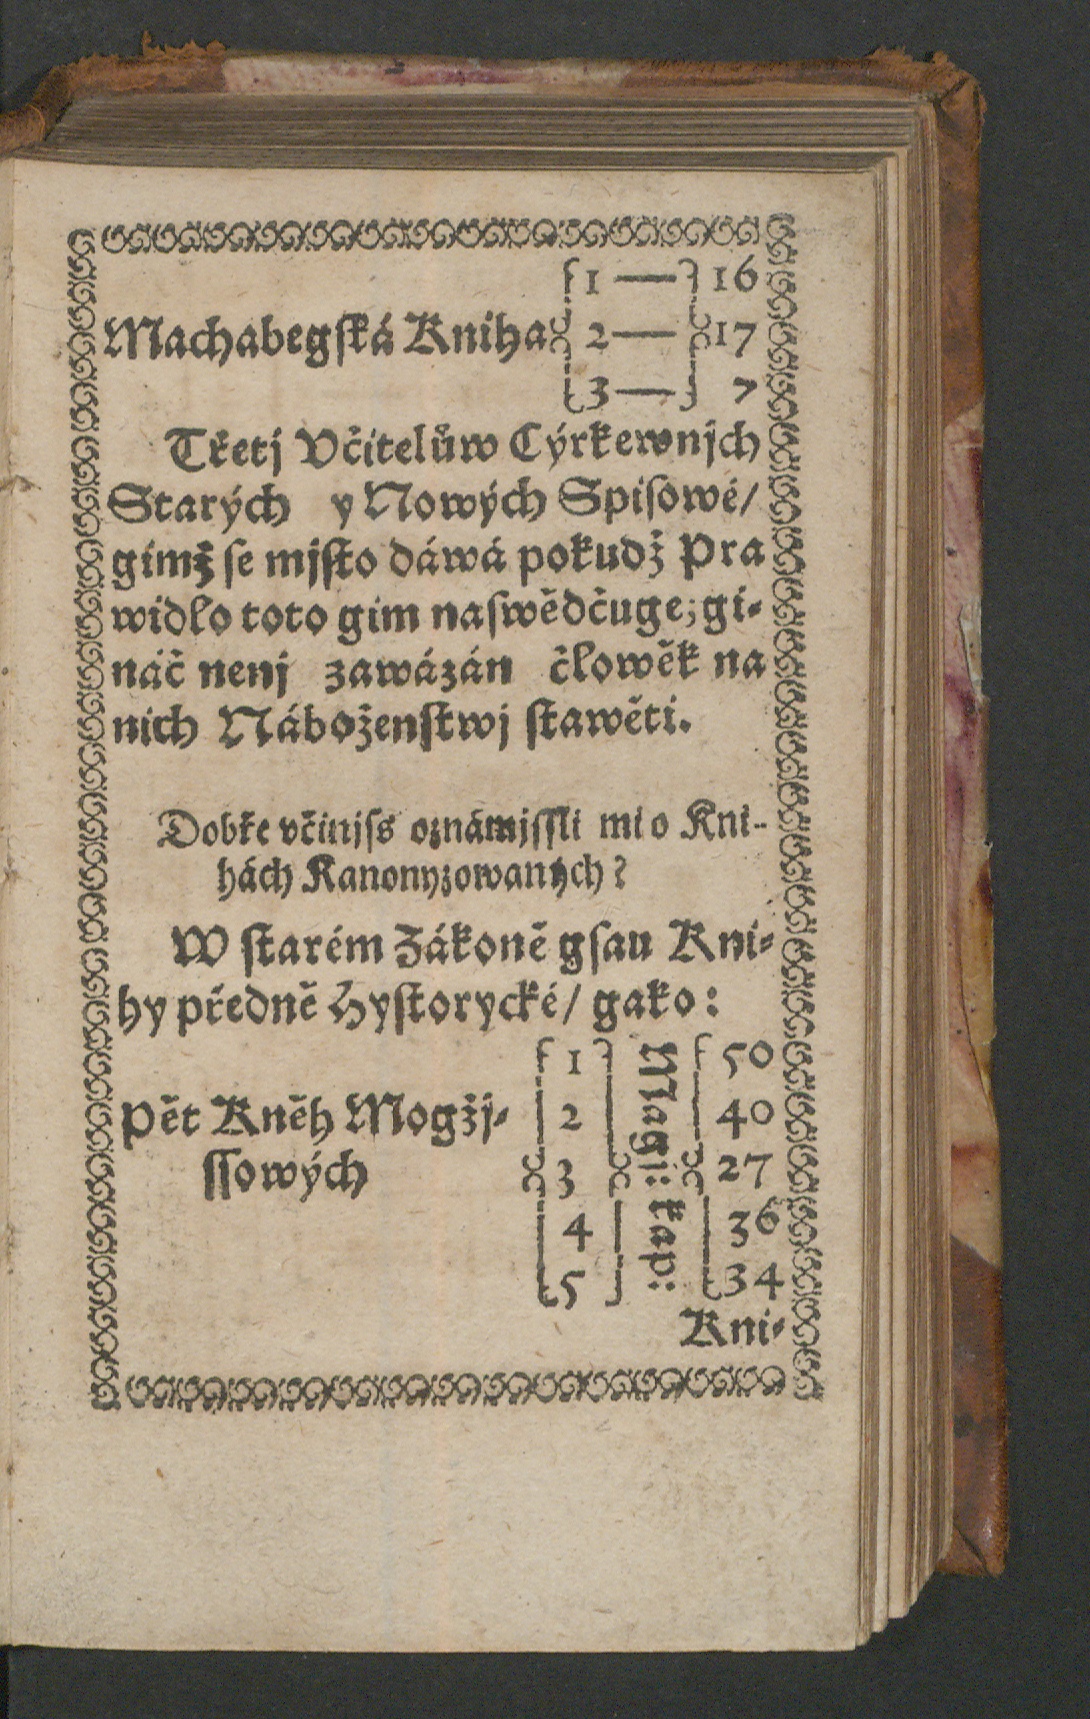 1 — 16
Machabegſká Kniha 2 — 17
3 — 7
Třetj Včitelůw Cýrkewnjch
Starých y Nowých Spiſowé/
gimž ſe mjſto dáwá pokudž Pra
widlo toto gim naſwědčuge; gi-
náč nenj zawázán člowěk na
nich Náboženſtwj ſtawěti.
Dobře včinjſs oznámjſſli mi o Kni-
hách Kanonyzowaných?
W ſtarém Zákoně gſau Kni-
hy předně Hyſtorycké/ gako:
1 50
Pět Kněh Mogžj- 2 40
ſſowých 3 Magi: kap: 27
4 36
5 34
Kni-